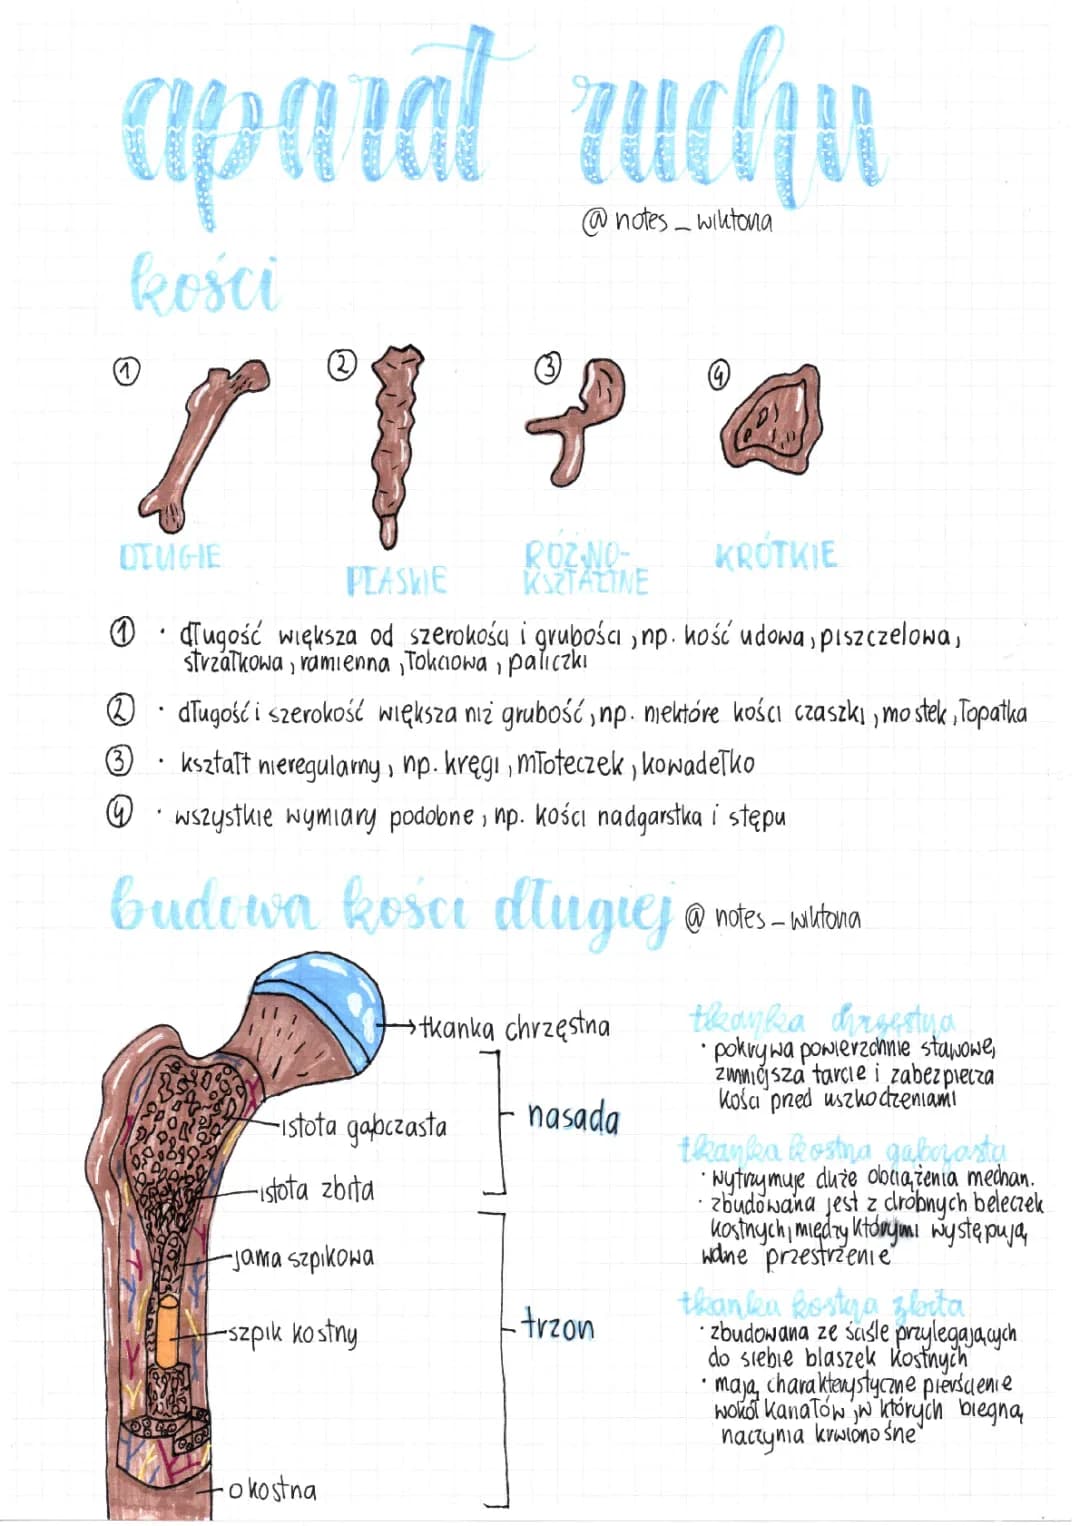 aparat ruchu
@ notes_wiktoria
kości
1
2
3
4
DŁUGIE
PŁASKIE
RÓŻNO-
KSZTAŁTNE
KRÓTKIE
1 · długość większa od szerokości i grubości, np. kość udowa, piszczelowa,
strzałkowa, ramienna, łokciowa, paliczki
2 · długość i szerokość większa niż grubość, np. niektóre kości czaszki, mostek, łopatka
3 · kształt nieregularny, np. kręgi, młoteczek, kowadełko
4 · wszystkie wymiary podobne, np. kości nadgarstka i stępu
budowa kości długiej @ notes_wiktoria
tkanka chrzęstna
istota gąbczasta
istota zbita
jama szpikowa
szpik kostny
okostna
nasada
trzon
tkanka chrzęstna
· pokrywa powierzchnie stawowe,
zmniejsza tarcie i zabezpiecza
kości przed uszkodzeniami
tkanka kostna gąbczasta
· wytrzymuje duże obciążenia mechan.
· zbudowana jest z drobnych beleczek
kostnych, między którymi występują
wolne przestrzenie
tkanka kostna zbita
· zbudowana ze ściśle przylegających
do siebie blaszek kostnych
· mają charakterystyczne pierścienie
wokół kanałów, w których biegną
naczynia krwionośne